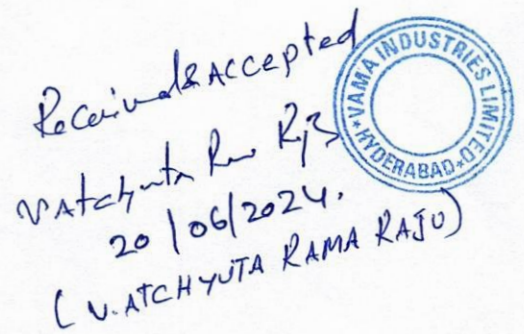 Received & Accepted
V Atchyuta Ram Raju
20/06/2024.
(V. ATCHYUTA RAMA RAJU)
VAMA INDUSTRIES LIMITED
* HYDERABAD *